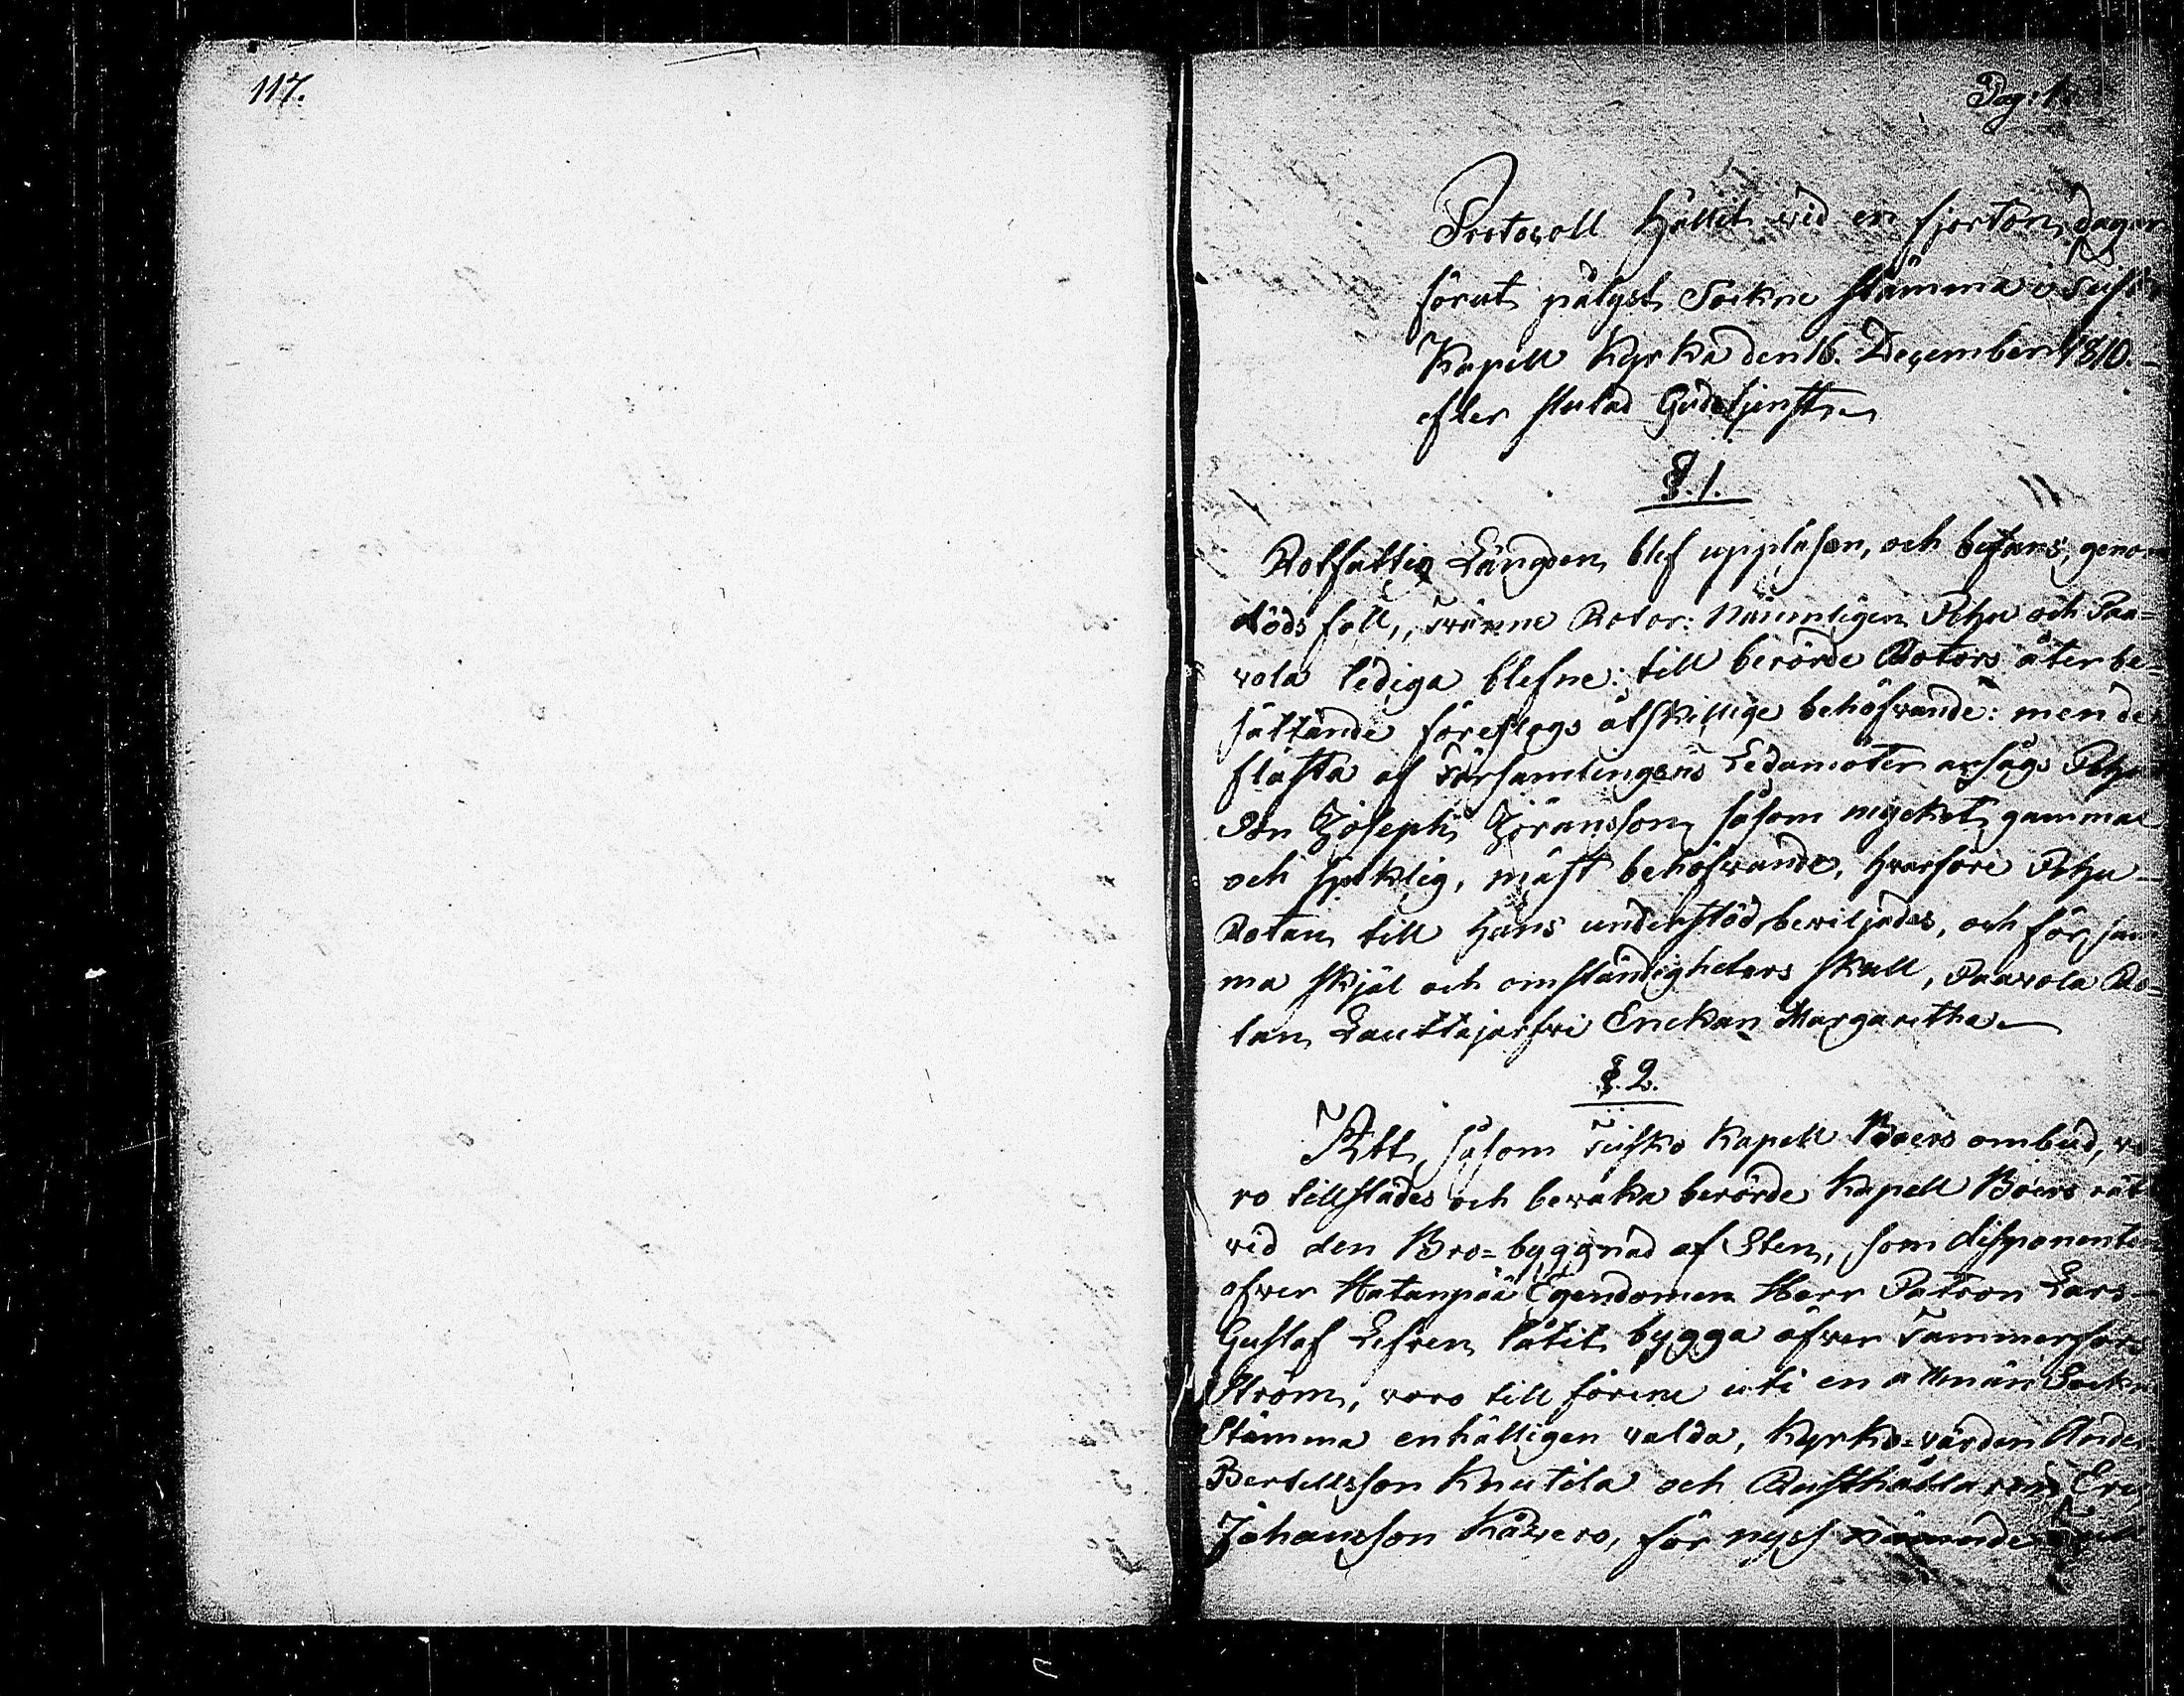 117.
Pag: 1.
Protocoll Hållit wid en fjorton dagar
förut pålyst Sockne stämma i Teisko
Kapell Kyrka den 16. December 1810.
efter slutad Gudstjenst
§. 1.
Rotfattig Längden blef uppläsen, och befans, genom
döds fall, twänne Rotor: Nämnligen Pohju och Paa-
vola lediga blefne: till berörde Rotors återbe-
sättande föreslogs åtskillige behöfwande: men de
flästa af Församlingens Ledamöter ansågs
Joseph Jöransson såsom mycket gammal
och sjuklig, mäst behöfwande, hwarföre
Rotan till hans understöd bewiljades, och för sam-
ma skjäl och omständigheters skull, Paavola Ro-
tan Lauttajärfwi Enckan Margaretha.
§. 2.
Att såsom Teisko Kapell Boers ombud, wa-
ra tillstädes och bewaka berörde Kapell Boers rätt
wid den Bro-byggnad af Sten, som disponenten
öfwer Hatanpää Egendomen Herr Patron Lars
Gustaf Lefren låtit bygga öfwer Tammerfors
Ström, woro till förene uti en allmän Sockne
Stämma enhälligen valda, Kyrko-värden Anders
Bertellsson Knutila och Rusthållaren Eric
Johansson Kåwero, för nyss nämnde